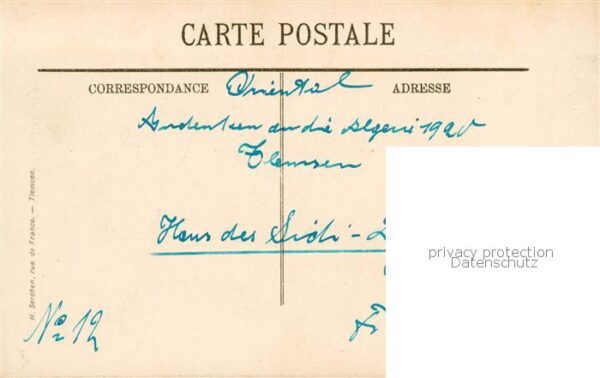 CARTE POSTALE
CORRESPONDANCE
ADRESSE
Oriental
Andenken an die Algerie 1920
Tlemsen
Haus des Sidi-
privacy protection
Datenschutz
No 12
Fr
H. Serehen, rue de France, — Tlemcen.